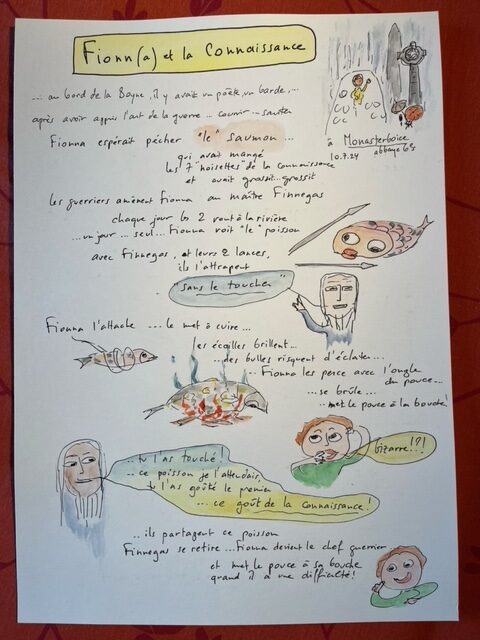 Fionn(a) et la Connaissance
... au bord de la Boyne, il y avait un poète, un barde, ...
après avoir appris l'art de la guerre ... courir ... sauter
Fionna espérait pêcher "le" saumon ...
qui avait mangé
les 7 "noisettes" de la connaissance
et avait grossi.. grossit
à Monasterboice
10.7.24 abbaye
les guerriers amènent Fionna au maître Finnegas
chaque jour les 2 vont à la rivière
... un jour ... seul ... Fionna voit "le" poisson
avec Finnegas, et leurs 2 lances,
ils l'attrapent
"sans le toucher"
Fionna l'attache ... le met à cuire ...
les écailles brillent...
... des bulles risquent d'éclater...
.. Fionna les perce avec l'ongle
du pouce...
... se brûle..
..met le pouce à la bouche!
bizarre!?!
.. tu l'as touché!
.. ce poisson je l'attendais,
tu l'as goûté le premier
... ce goût de la connaissance!
.. ils partagent ce poisson
Finnegas se retire ... Fionna devient le chef guerrier
et met le pouce à sa bouche
quand il a une difficulté!